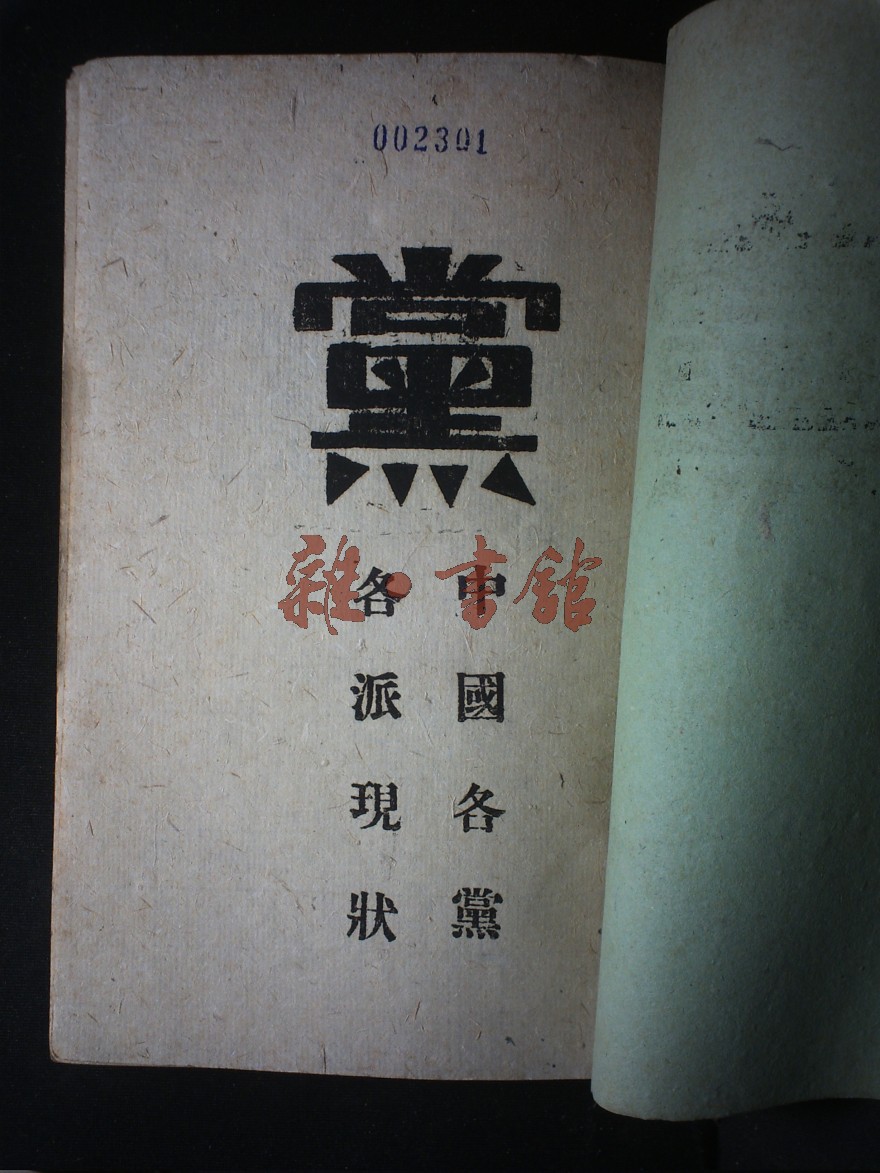 002301
黨
中國各黨
各派現狀
雜·書館